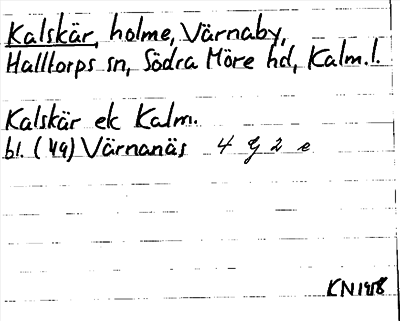 Kalskär, holme, Värnaby,
Halltorps sn, Södra Möre hd, Kalm.l.
Kalskär ek Kalm.
bl. (49) Värnanäs 4 G 2 e
KN 1958